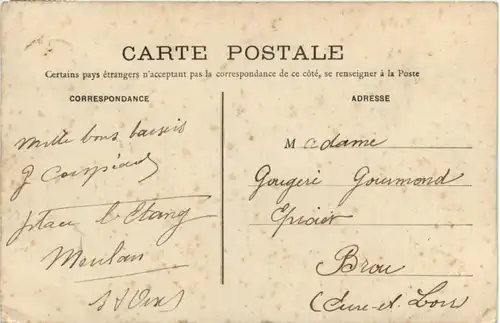 CARTE POSTALE
Certains pays étrangers n'acceptant pas la correspondance de ce côté, se renseigner à la Poste
CORRESPONDANCE
Mille bons baisers
Meulan
S & Oise
ADRESSE
Madame
Gougeré Gourmond
Epicier
Brou
(Eure-et-Loir